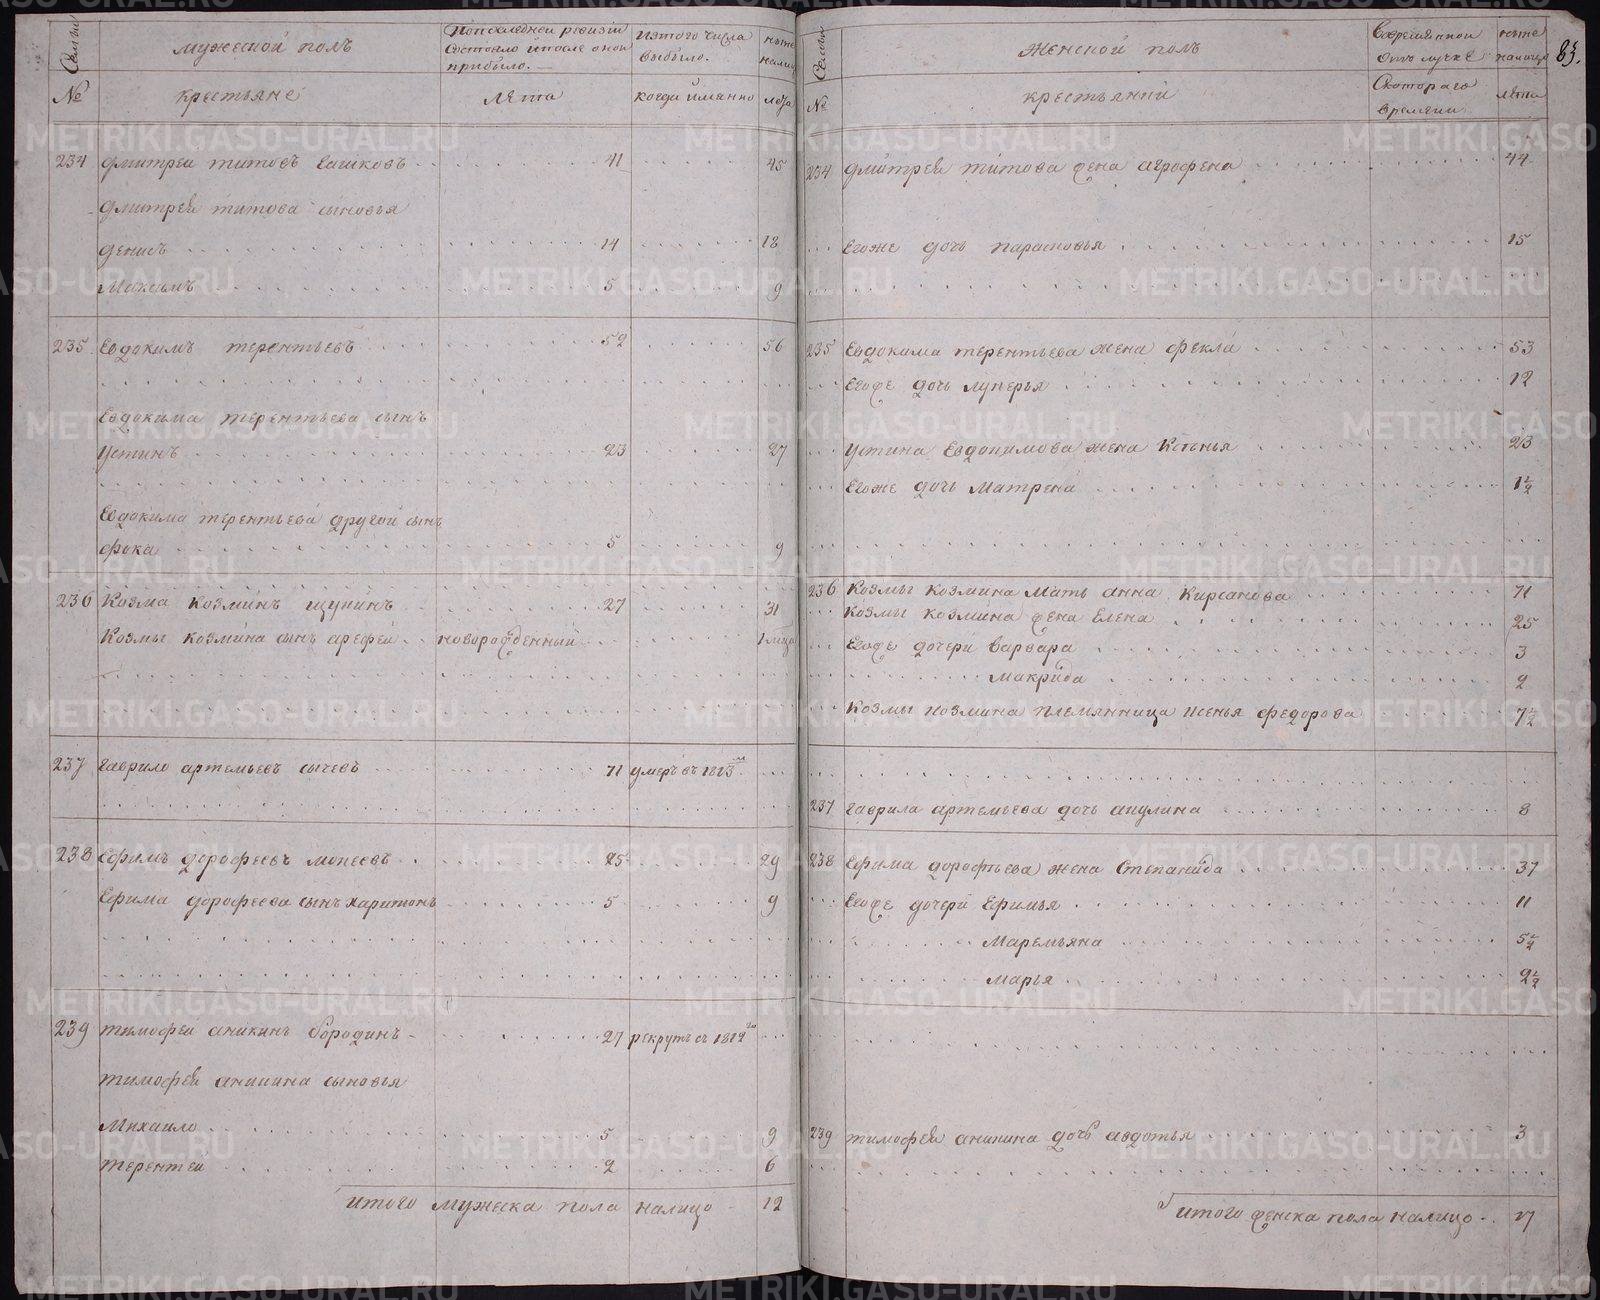 Семьи
мужеской полъ
По последней ревизiи
состояло и после оной
прибыло.
Изтого числа
выбыло.
ныне
налицо
№
крестьяне
лѣта
когда имянно
лѣта
234 Дмитреи титовъ Сашковъ 41 45
Дмитрея титова сыновья
Денисъ 14 18
Максимъ 5 9
235 Евдокимъ терентьевъ 52 56
Евдокима терентьева сынъ
Устинъ 23 27
Евдокима терентьева другой сынъ
фока 5 9
236 Козма Козминъ щупинъ 27 31
Козмы козмина сынъ арефеи новорожденный
237 Гаврило артемьевъ сычевъ 71 умеръ въ 1813
238 Ефимъ дорофеевъ мокеевъ 25 29
Ефима дорофеева сынъ харитонъ 5 9
239 тимофеи аникинъ бородинъ 27 рекрутъ съ 1812
тимофея аникина сыновья
Михаило 5 9
терентеи 2 6
итого мужеска пола налицо 12
Семьи
Женской полъ
ныне
налицо
83.
№
крестьянки
Скотораго
времяни
лѣта
234 Дмитрея титова жена агрофена 44
Егоже дочь парасковья 15
235 Евдокима терентьева жена фекла 53
Егоже дочь лукерья 12
Устина Евдокимова жена Ксенья 23
Егоже дочь Матрена 1½
236 Козмы козмина мать анна Кирсанова 71
Козмы козмина жена Елена 25
Егоже дочери варвара 3
Макрида 2
Козмы козмина племянница ксенья федорова 7½
237 Гаврила артемьева дочь акулина 8
238 Ефима дорофеева жена Степанида 37
Егоже дочери Ефимья 11
Маремьяна 5½
Марья 2½
239 тимофея аникина дочь авдотья 3
итого женска пола налицо 17
METRIKI.GASO-URAL.RU